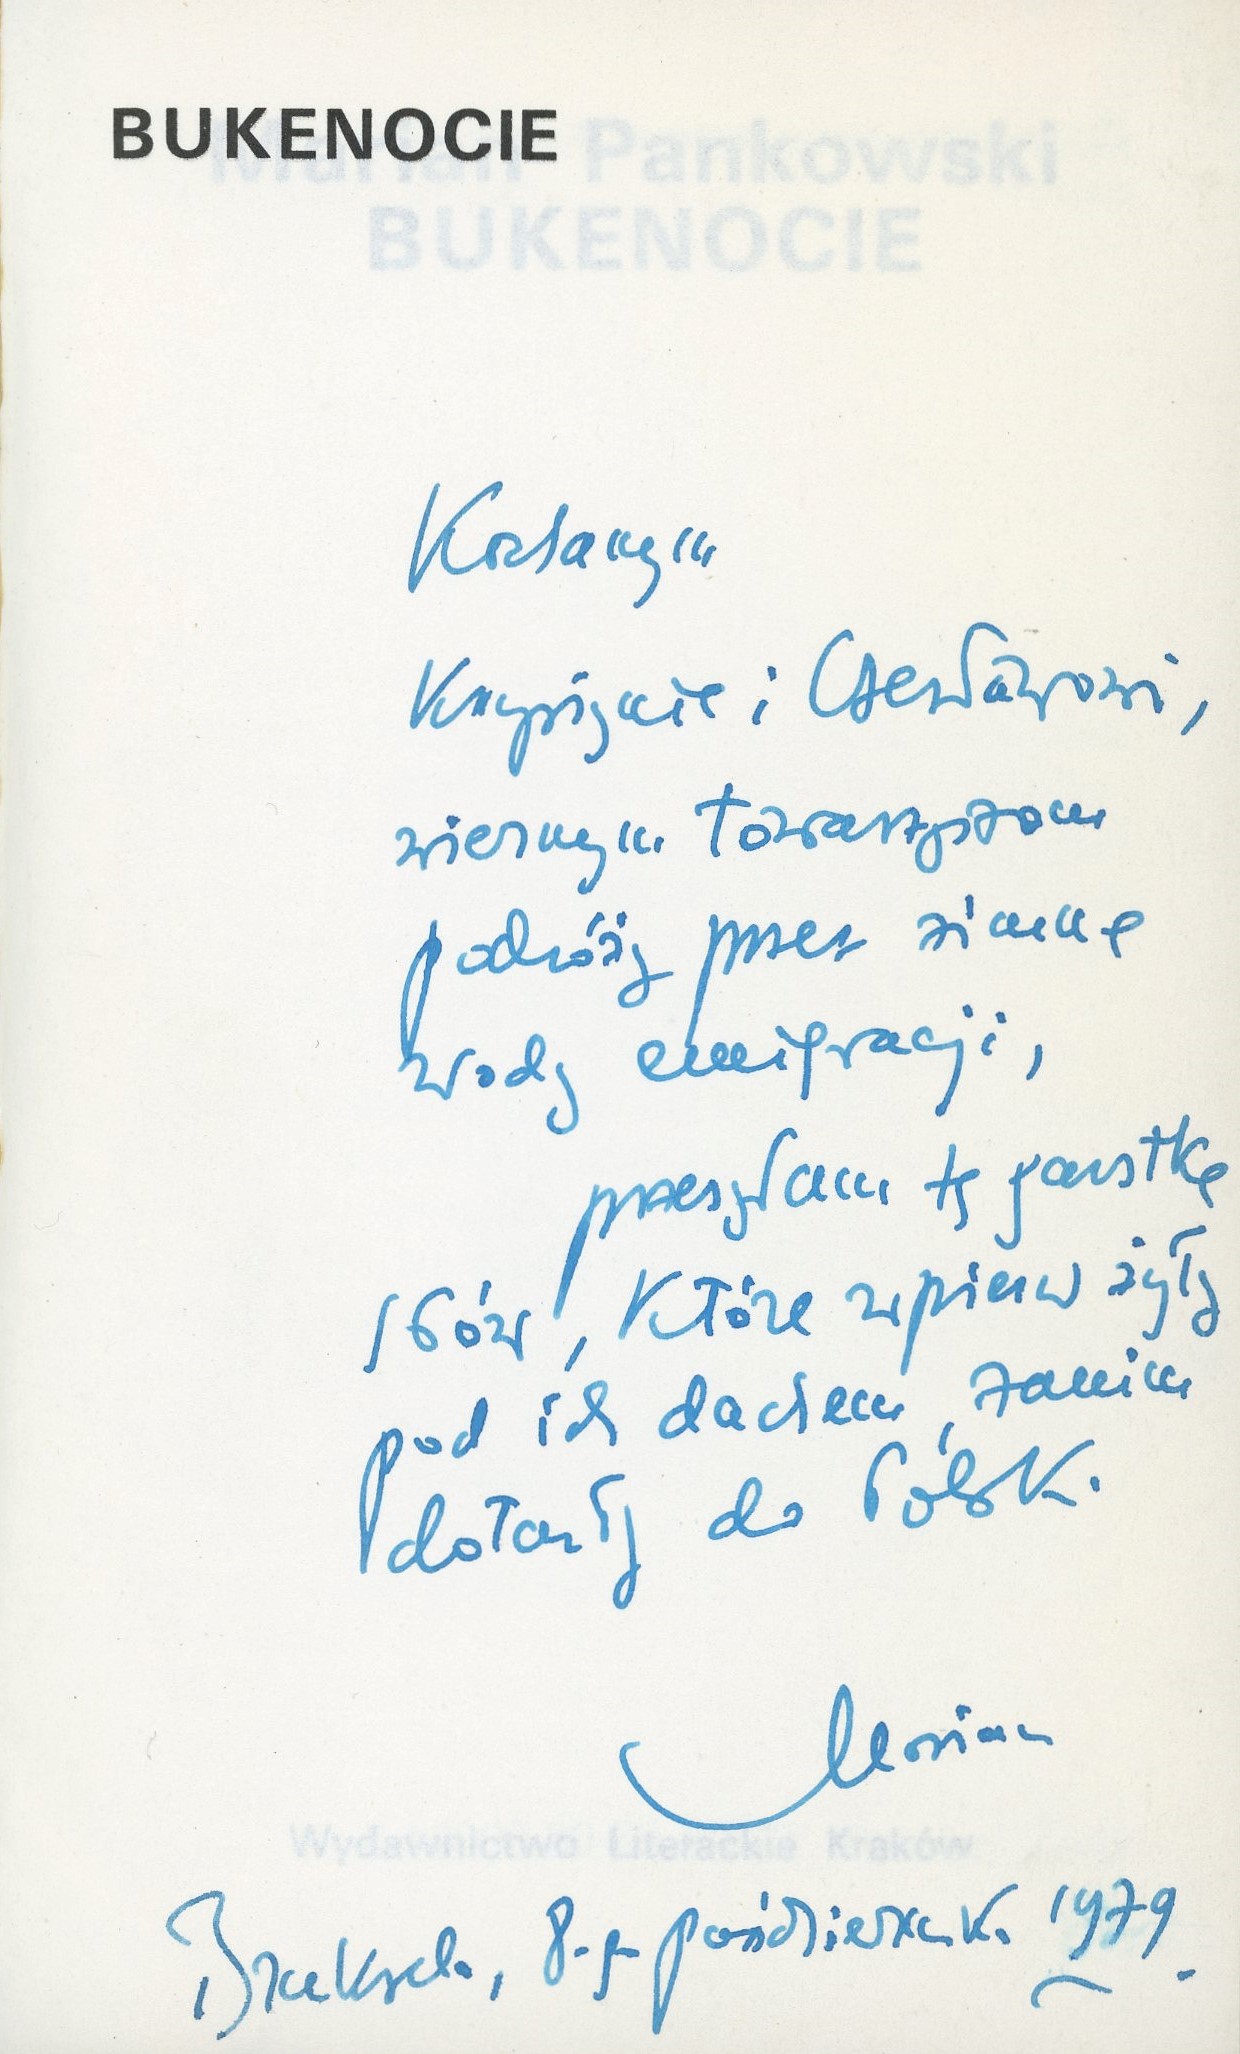 BUKENOCIE
Marian Pankowski
BUKENOCIE
Kochanym
Krystynie i Czesławowi,
wiernym towarzyszom
podróży przez zimne
wody emigracji,
przesyłam tę garstkę
słów, które wpierw żyły
pod ich dachem, zanim
dotarły do Polski.
Marian
Wydawnictwo Literackie Kraków
Bruksela, 8-go października 1979.